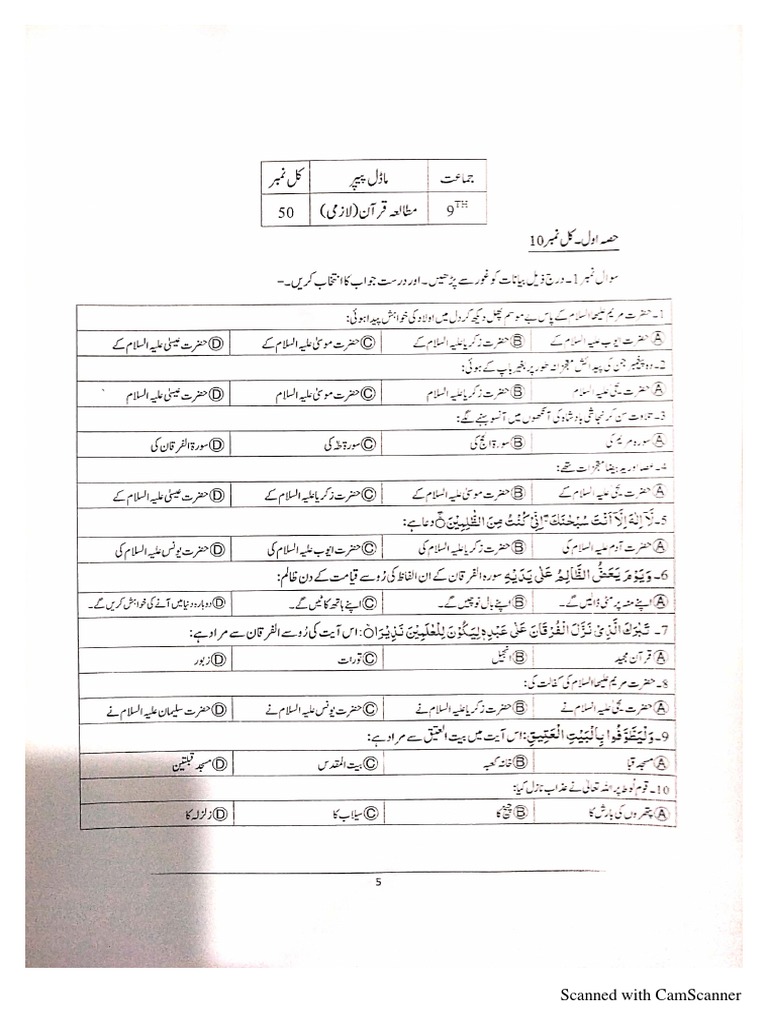 جماعت ماڈل پیپر کل نمبر
9TH مطالعہ قرآن (لازمی) 50
حصہ اول۔ کل نمبر 10
سوال نمبر 1۔ درج ذیل بیانات کو غور سے پڑھیں۔ اور درست جواب کا انتخاب کریں۔۔
1۔ حضرت مریم علیھا السلام کے پاس بے موسم پھل دیکھ کر دل میں اولاد کی خواہش پیدا ہوئی:
Ⓐ حضرت ایوب علیہ السلام کے Ⓑ حضرت زکریا علیہ السلام کے Ⓒ حضرت موسیٰ علیہ السلام کے Ⓓ حضرت عیسیٰ علیہ السلام کے
2۔ وہ پیغمبر جن کی پیدائش معجزانہ طور پر بغیر باپ کے ہوئی:
Ⓐ حضرت یحیٰ علیہ السلام Ⓑ حضرت زکریا علیہ السلام Ⓒ حضرت موسیٰ علیہ السلام Ⓓ حضرت عیسیٰ علیہ السلام
3۔ تلاوت سن کر نجاشی بادشاہ کی آنکھوں میں آنسو بہنے لگے:
Ⓐ سورہ مریم کی Ⓑ سورۃ الحج کی Ⓒ سورۃ طٰہٰ کی Ⓓ سورۃ الفرقان کی
4۔ عصا اور ید بیضا معجزات تھے:
Ⓐ حضرت یحیٰ علیہ السلام کے Ⓑ حضرت موسیٰ علیہ السلام کے Ⓒ حضرت زکریا علیہ السلام کے Ⓓ حضرت عیسیٰ علیہ السلام کے
5۔ لَآ اِلٰهَ اِلَّآ اَنْتَ سُبْحٰنَكَ اِنِّیْ كُنْتُ مِنَ الظّٰلِمِیْنَ دعا ہے:
Ⓐ حضرت آدم علیہ السلام کی Ⓑ حضرت زکریا علیہ السلام کی Ⓒ حضرت ایوب علیہ السلام کی Ⓓ حضرت یونس علیہ السلام کی
6۔ وَیَوْمَ یَعَضُّ الظَّالِمُ عَلٰی یَدَیْهِ سورہ الفرقان کے ان الفاظ کی رُو سے قیامت کے دن ظالم:
Ⓐ اپنے منہ پر مٹی ڈالیں گے۔ Ⓑ اپنے بال نوچیں گے۔ Ⓒ اپنے ہاتھ کاٹیں گے۔ Ⓓ دوبارہ دنیا میں آنے کی خواہش کریں گے۔
7۔ تَبٰرَكَ الَّذِیْ نَزَّلَ الْفُرْقَانَ عَلٰی عَبْدِهٖ لِیَكُوْنَ لِلْعٰلَمِیْنَ نَذِیْرًا: اس آیت کی رُو سے الفرقان سے مراد ہے:
Ⓐ قرآن مجید Ⓑ انجیل Ⓒ تورات Ⓓ زبور
8۔ حضرت مریم علیھا السلام کی کفالت کی:
Ⓐ حضرت یحیٰ علیہ السلام نے Ⓑ حضرت زکریا علیہ السلام نے Ⓒ حضرت یونس علیہ السلام نے Ⓓ حضرت سلیمان علیہ السلام نے
9۔ وَلْیَطَّوَّفُوْا بِالْبَیْتِ الْعَتِیْقِ: اس آیت میں بیت العتیق سے مراد ہے:
Ⓐ مسجد قبا Ⓑ خانہ کعبہ Ⓒ بیت المقدس Ⓓ مسجد قبلتین
10۔ قوم لُوط پر اللہ تعالیٰ نے عذاب نازل کیا:
Ⓐ پتھروں کی بارش کا Ⓑ چیخ کا Ⓒ سیلاب کا Ⓓ زلزلہ کا
5
Scanned with CamScanner